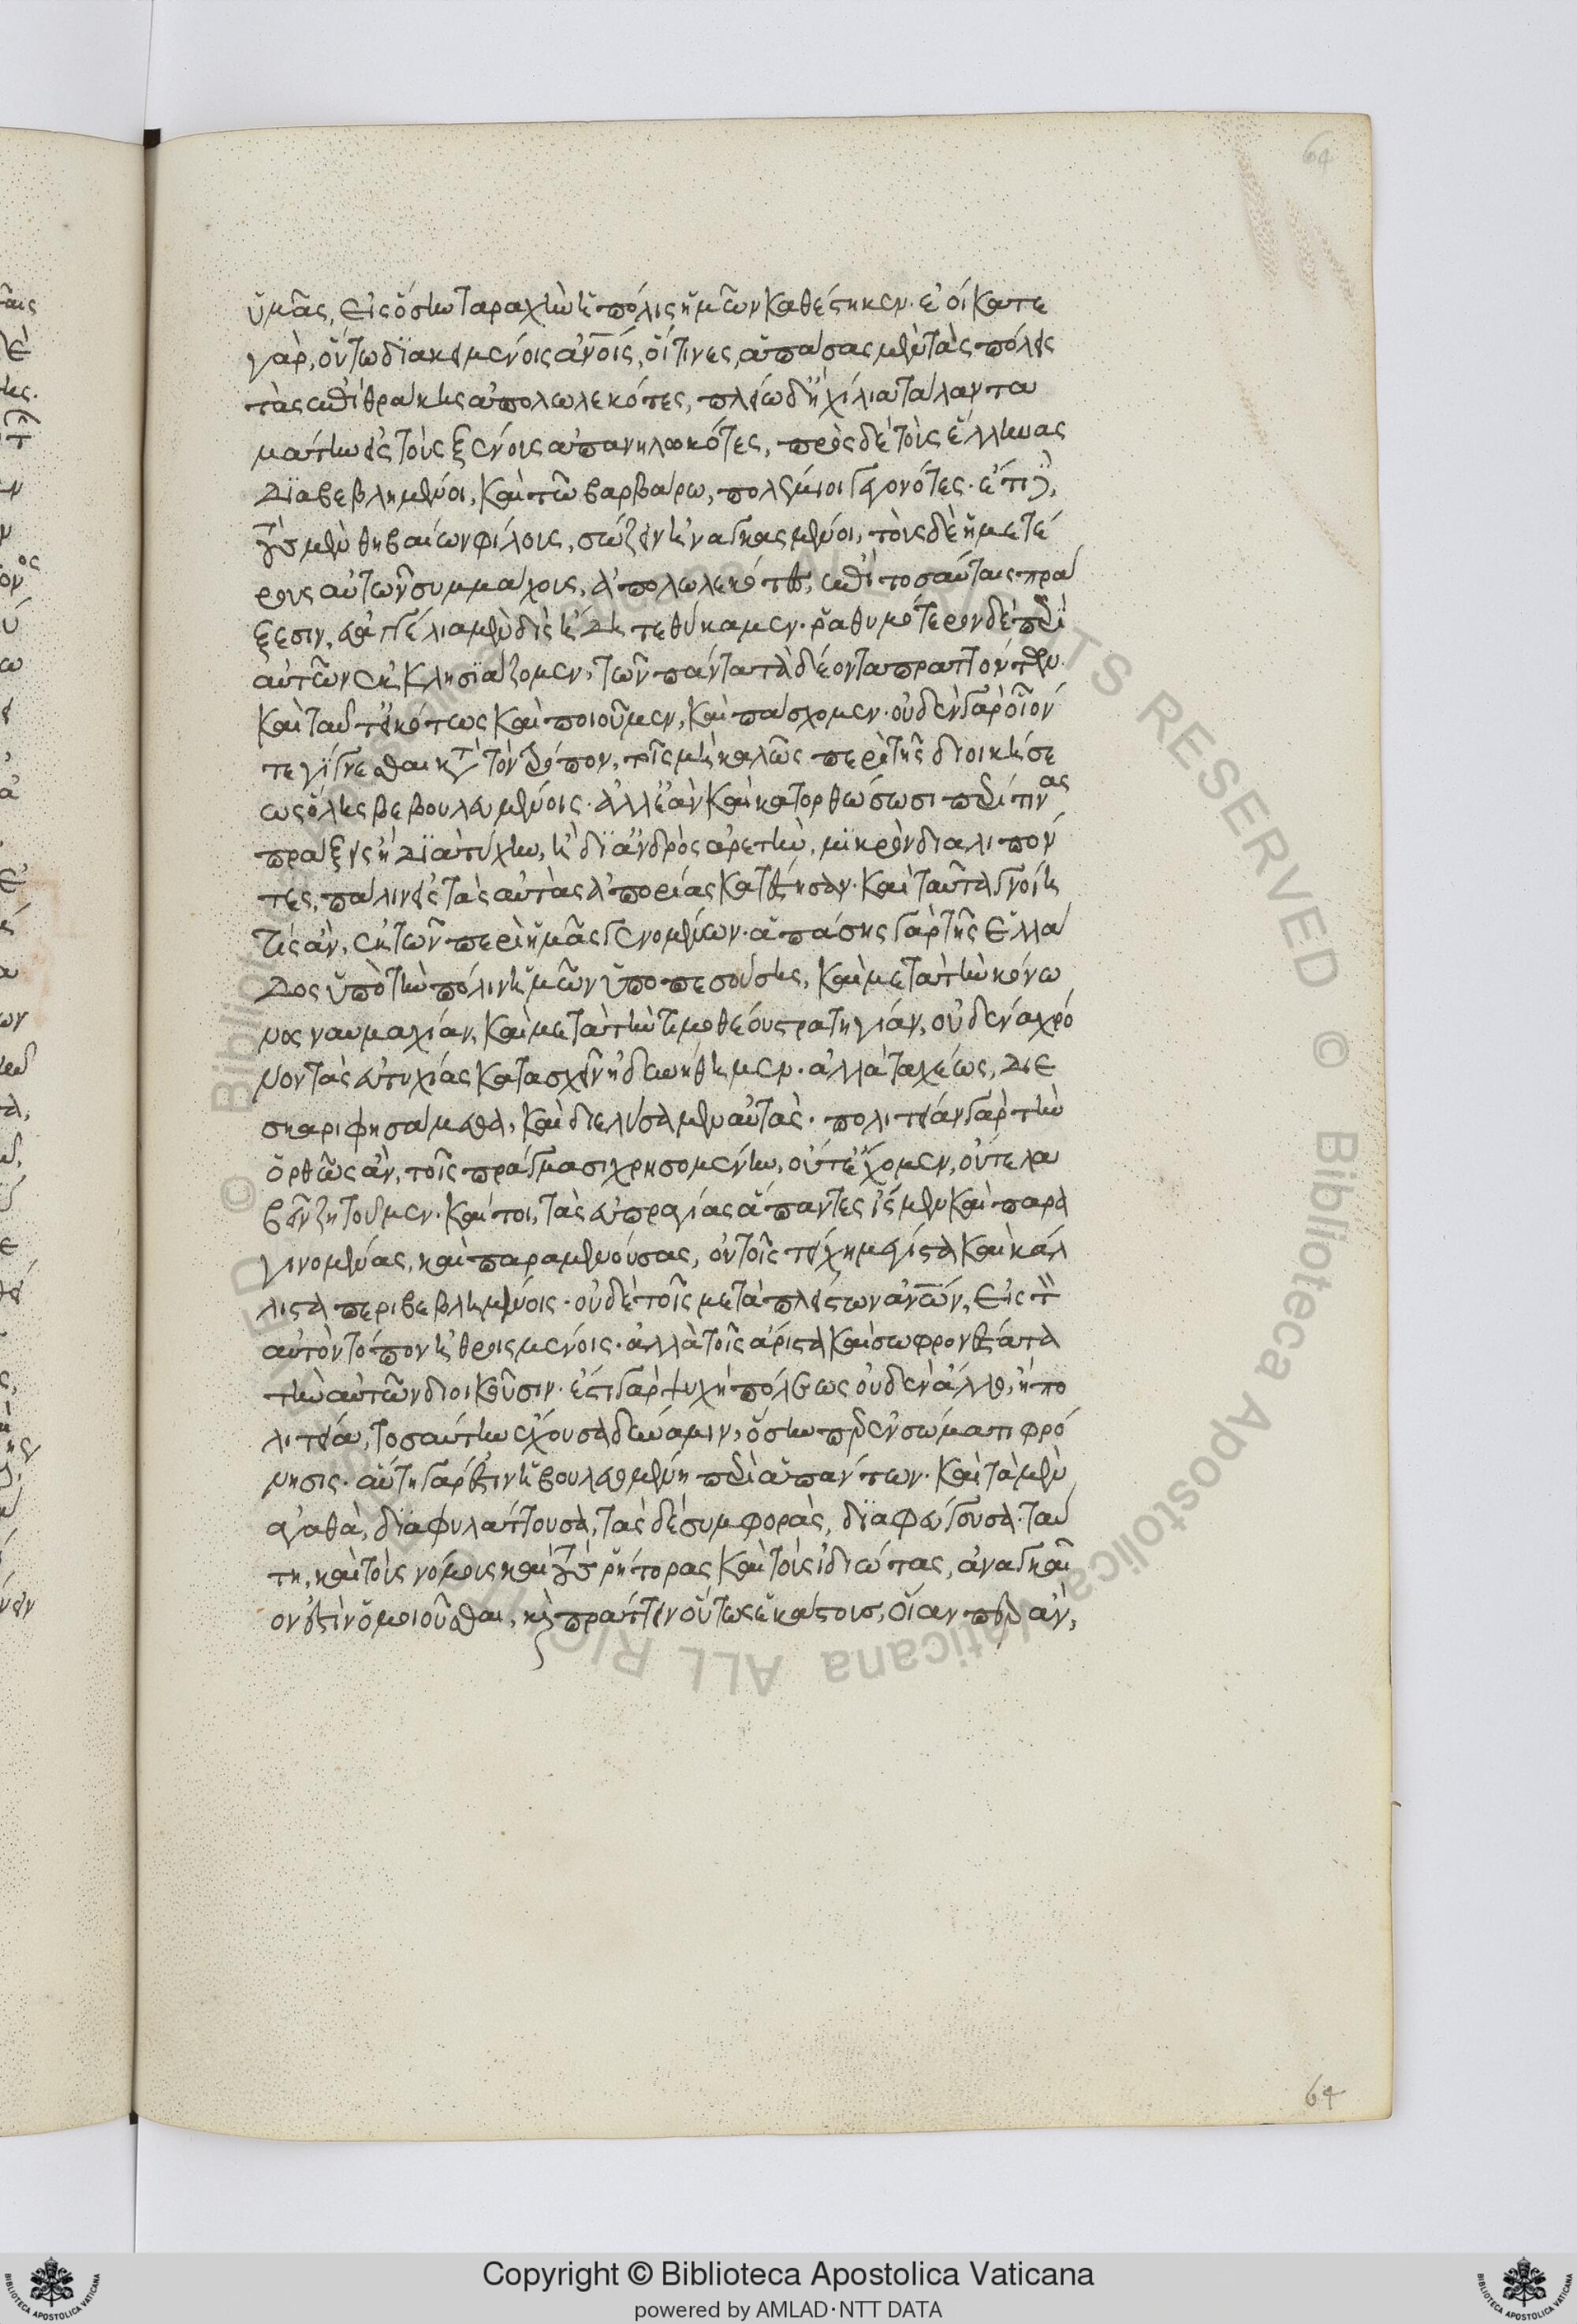 64
ὑμᾶς, εἰς ὅσην ταραχὴν ἡ πόλις ἡμῶν καθέστηκεν· ἐοίκατε
γὰρ, οὕτω διακειμένοις ἀνοις, οἵτινες, ἁπάσας μὲν τὰς πόλεις
τὰς ἐπὶ θράκης ἀπολωλεκότες, πλείω δ' ἢ χίλια τάλαντα
μάτην εἰς τοὺς ξένους ἀπανηλωκότες, πρὸς δὲ τοὺς ἕλληνας
διαβεβλημένοι, καὶ τῶ βαρβάρω, πολέμιοι γεγονότες· ἔτι δὲ,
τοὺς μὲν θηβαίων φίλους, σώζειν ἠναγκασμένοι, τοὺς δὲ ἡμετέ
ρους αὐτῶν συμμάχους, ἀπολωλεκότες, ἐπὶ τοσαύταις πρά
ξεσιν, εὐαγγέλια μὲν δὶς ἤδη τεθύκαμεν· ῥαθυμότερον δὲ περὶ
αὐτῶν ἐκκλησιάζομεν, τῶν πάντα τὰ δέοντα πραττόντων·
καὶ ταῦτ' εἰκότως καὶ ποιοῦμεν, καὶ πάσχομεν· οὐδὲν γὰρ οἷόν
τε γίγνεσθαι κατὰ τὸν τρόπον, τοῖς μὴ καλῶς περὶ τῆς διοικήσε
ως ὅλης βεβουλευμένοις· ἀλλ' ἐὰν καὶ κατορθώσωσι περί τινας
πράξεις ἢ διὰ τύχην, ἢ δι' ἀνδρὸς ἀρετὴν, μικρὸν διαλιπόν
τες, πάλιν εἰς τὰς αὐτὰς ἀπορίας κατέστησαν· καὶ ταῦτα γνοίη
τις ἂν, ἐκ τῶν περὶ ἡμᾶς γενομένων· ἁπάσης γὰρ τῆς ἑλλά
δος ὑπὸ τὴν πόλιν ἡμῶν ὑποπεσούσης, καὶ μετὰ τὴν κόνω
νος ναυμαχίαν, καὶ μετὰ τὴν τιμοθέου στρατηγίαν, οὐδένα χρό
νον τὰς εὐτυχίας κατασχεῖν ἠδυνήθημεν· ἀλλὰ ταχέως, διε
σκαριφησάμεθα, καὶ διελύσαμεν αὐτὰς· πολιτείαν γὰρ τὴν
ὀρθῶς ἂν, τοῖς πράγμασι χρησομένην, οὔτ' ἔχομεν, οὔτε λα
βεῖν ζητοῦμεν· καίτοι, τὰς εὐπραγίας ἅπαντες ἴσμεν καὶ παρα
γινομένας, καὶ παραμενούσας, οὐ τοῖς τείχη μέγιστα καὶ κάλ
λιστα περιβεβλημένοις· οὐδὲ τοῖς μετὰ πλείστων ἀνων, εἰς τὸν
αὐτὸν τόπον ἠθροισμένοις· ἀλλὰ τοῖς ἄριστα καὶ σωφρονέστατα
τὴν αὐτῶν διοικοῦσιν· ἔστι γὰρ ψυχὴ πόλεως οὐδὲν ἄλλο, ἢ πο
λιτεία, τοσαύτην ἔχουσα δύναμιν, ὅσην περ ἐν σώματι φρό
νησις· αὕτη γάρ ἐστιν ἡ βουλευομένη περὶ ἁπάντων· καὶ τὰ μὲν
ἀγαθὰ, διαφυλάττουσα, τὰς δὲ συμφορὰς, διαφεύγουσα· ταύ
τη, καὶ τοὺς νόμους καὶ τοὺς ῥήτορας καὶ τοὺς ἰδιώτας, ἀναγκαῖ
όν ἐστιν ὁμοιοῦσθαι, καὶ πράττειν οὕτως ἑκάστους, οἵαν περ ἂν,
64
Copyright © Biblioteca Apostolica Vaticana
powered by AMLAD·NTT DATA